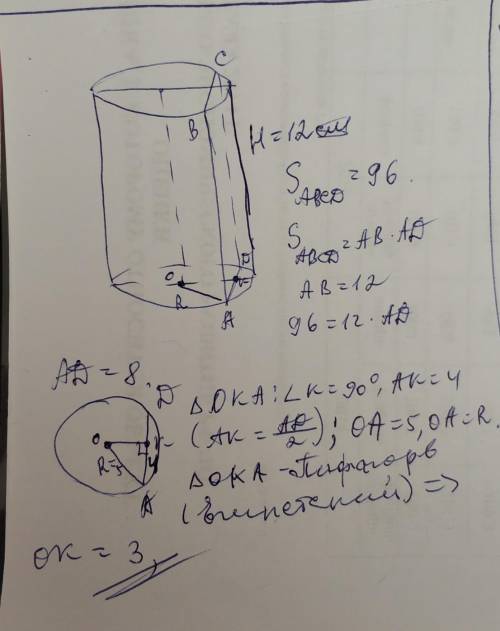 C
B
H = 12 см
S ABCD = 96.
S ABCD = AB · AD
AB = 12
96 = 12 · AD
O
R
D
A
AD = 8.
D
O
R=5
4
A
Δ OKA: ∠K = 90°, AK = 4
(AK = AD/2); OA = 5, OA = R.
Δ OKA – Пифагоров
(Египетский) =>
OK = 3